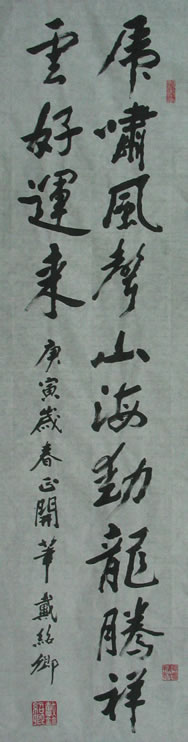 虎啸風聲山海動龍騰祥
雲好運来
庚寅歲春正開筆戴紹卿